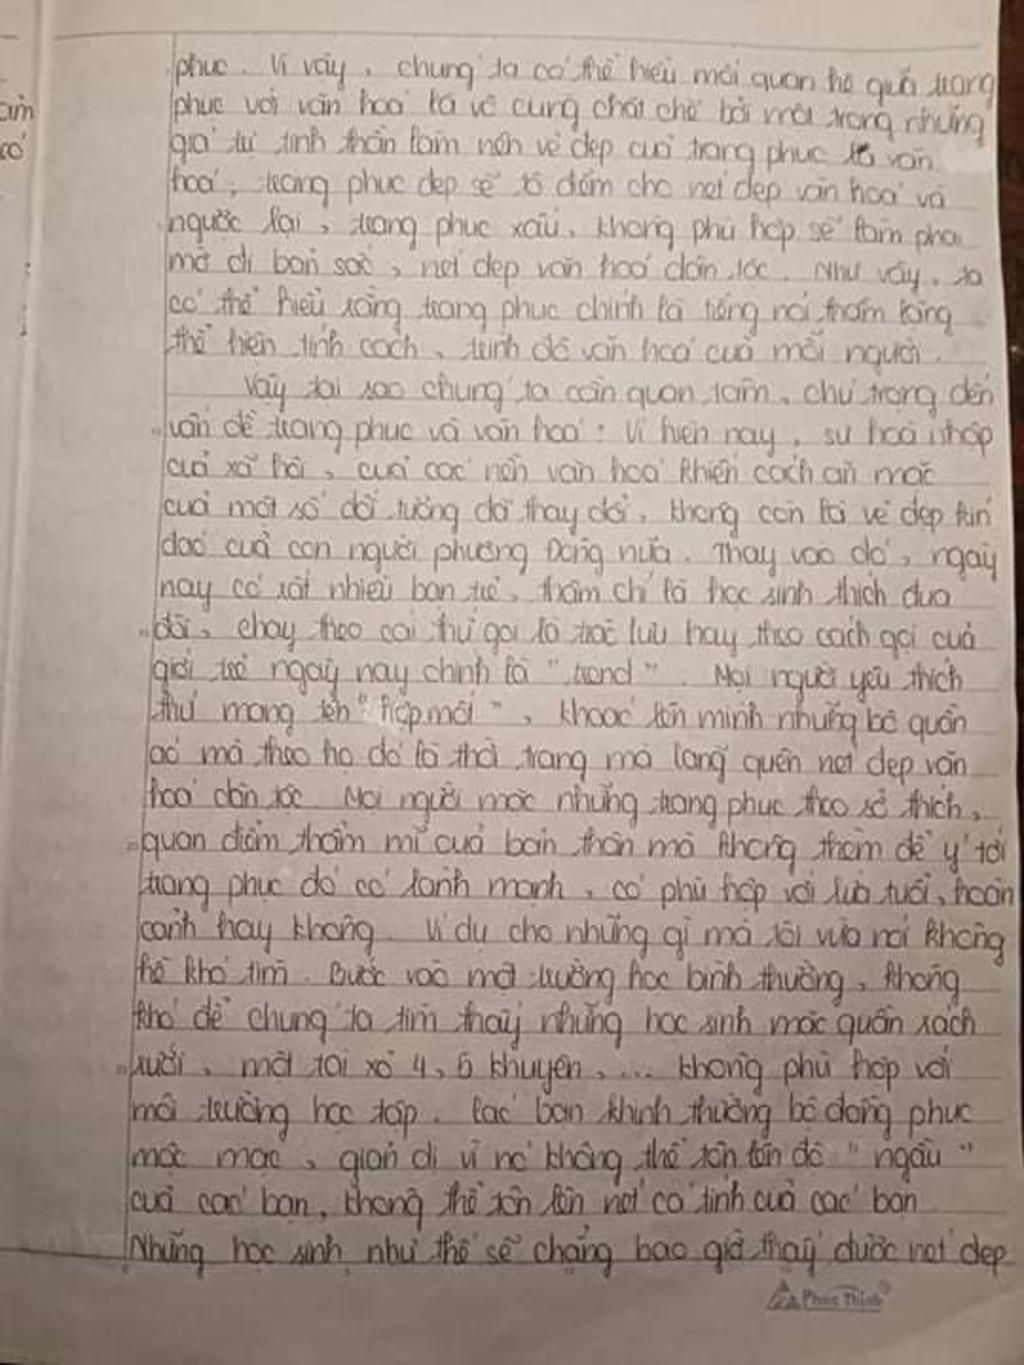 phục. Vì vậy, chúng ta có thể hiểu mối quan hệ quả trang
phục với văn hoá là vô cùng chặt chẽ bởi một trong những
giá trị tinh thần làm nên vẻ đẹp của trang phục là văn
hoá, trang phục đẹp sẽ tô điểm cho nét đẹp văn hoá và
ngược lại, trang phục xấu, không phù hợp sẽ làm phai
mờ đi bản sắc, nét đẹp văn hoá dân tộc. Như vậy, ta
có thể hiểu rằng trang phục chính là tiếng nói thầm lặng
thể hiện tính cách, trình độ văn hoá của mỗi người.
Vậy tại sao chúng ta cần quan tâm, chú trọng đến
vấn đề trang phục và văn hoá? Vì hiện nay, sự hoà nhập
của xã hội, của các nền văn hoá khiến cách ăn mặc
của một số đối tượng đã thay đổi, không còn là vẻ đẹp kín
đáo của con người phương Đông nữa. Thay vào đó, ngày
nay có rất nhiều bạn trẻ, thậm chí là học sinh thích đua
đòi, chạy theo cái thứ gọi là trào lưu hay theo cách gọi của
giới trẻ ngày nay chính là "trend". Mọi người yêu thích
thứ mang tên "hợp mốt", khoác lên mình những bộ quần
áo mà theo họ đó là thời trang mà lãng quên nét đẹp văn
hoá dân tộc. Mọi người mặc những trang phục theo sở thích,
quan điểm thẩm mĩ của bản thân mà không thèm để ý tới
trang phục đó có lành mạnh, có phù hợp với lứa tuổi, hoàn
cảnh hay không. Ví dụ cho những gì mà tôi vừa nói không
hề khó tìm. Bước vào một trường học bình thường, không
khó để chúng ta tìm thấy những học sinh mặc quần rách
rưới, một tai xỏ 4, 5 khuyên, ... không phù hợp với
môi trường học tập. Các bạn khinh thường bộ đồng phục
mộc mạc, giản dị vì nó không thể tôn lên độ "ngầu"
của các bạn, không thể tôn lên nét cá tính của các bạn.
Những học sinh như thế sẽ chẳng bao giờ thấy được nét đẹp
Phúc Thịnh